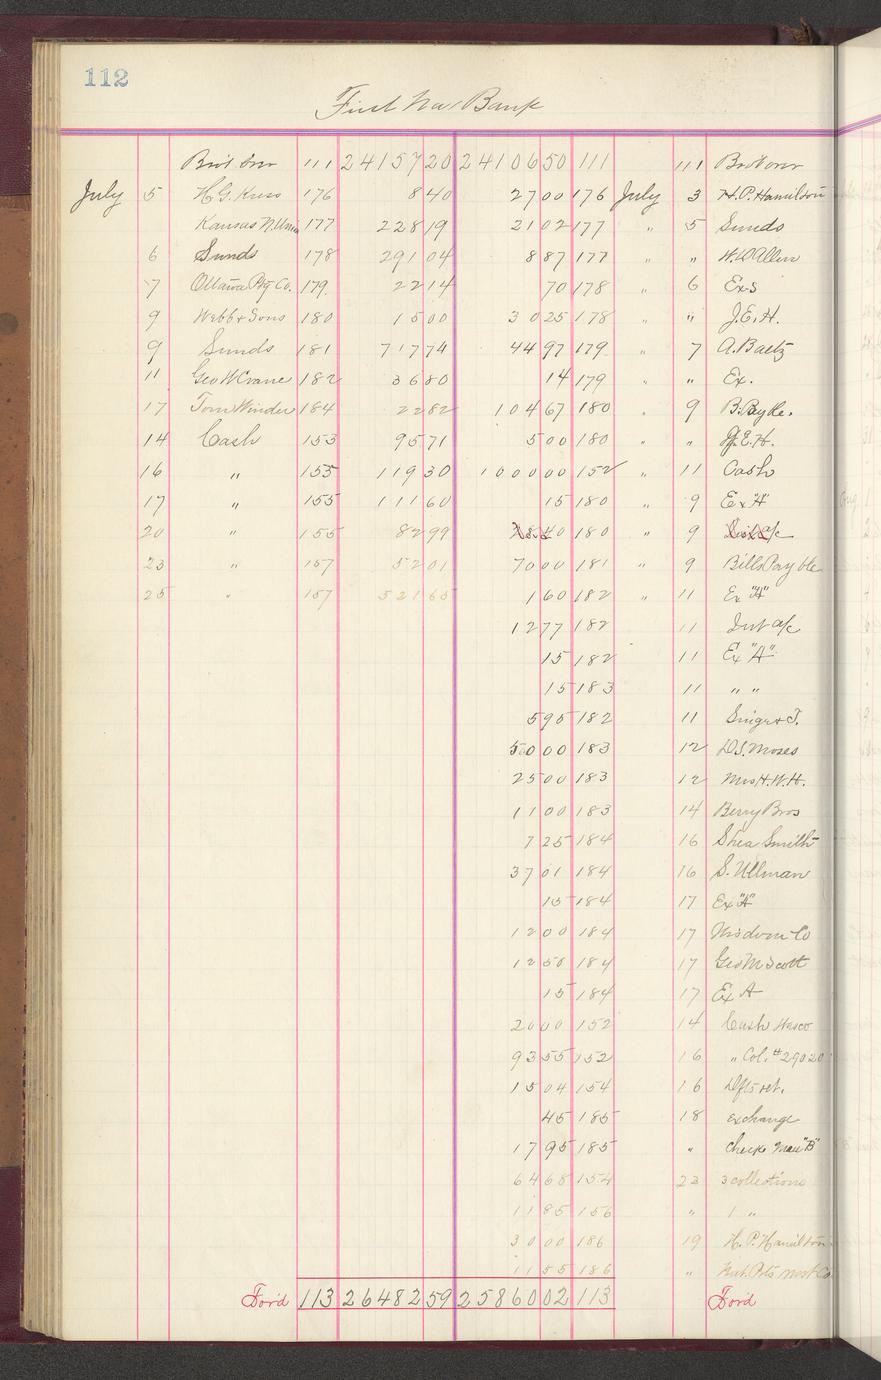 112
First Na. Bank
Brot over 111 24157 20 24106 50 111 111 Brot over
July 5 H.G. Kress 176 8 40 27 00 176 July 3 H.P. Hamilton
Kansas N. Union 177 228 19 21 02 177 " 5 Sunds
6 Sunds 178 291 04 8 87 177 " " W.D Allen
7 Ottawa Ptg Co. 179. 22 14 70 178 " 6 Exs
9 Webb & Sons 180 15 00 30 25 178 " " J.E.H.
9 Sunds 181 717 74 44 97 179 " 7 A. Baetz
11 Geo W Crane 182 36 80 14 179 " " Ex.
17 Tom Winder 184 22 82 104 67 180 " 9 B. Payble.
14 Cash 153 95 71 5 00 180 " " J.E.H.
16 " 153 119 30 1000 00 152 " 11 Cash
17 " 155 111 60 15 180 " 9 Ex "A"
20 " 155 82 99 180 " 9 a/c
23 " 157 52 01 70 00 181 " 9 Bills Payble
25 " 157 521 65 1 60 182 " 11 Ex "A"
12 77 182 11 Int a/c
15 182 11 Ex "A"
15 183 11 " "
5 95 182 11 Singer & T.
50 00 183 12 D.S. Moses
25 00 183 12 Mrs H.W.H.
11 00 183 14 Berry Bros
7 25 184 16 Shea Smith
37 01 184 16 S. Ullman
15 184 17 Ex "A"
12 00 184 17 Wisdom Co
12 50 184 17 Geo M Scott
15 184 17 Ex A
20 00 152 14 Cash Hasco
93 55 152 16 " Col. #29020
15 04 154 16 Dfts ret.
45 185 18 exchange
17 95 185 " check "B"
64 68 154 23 3 collections
11 85 156 " 1 "
30 00 186 19 H.P. Hamilton
11 55 186 " Co
Ford 113 26482 59 25860 02 113 Ford